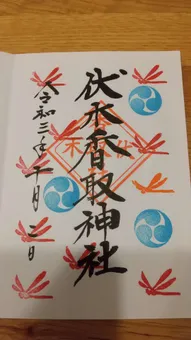 伏木香取神社
令和三年十月二日